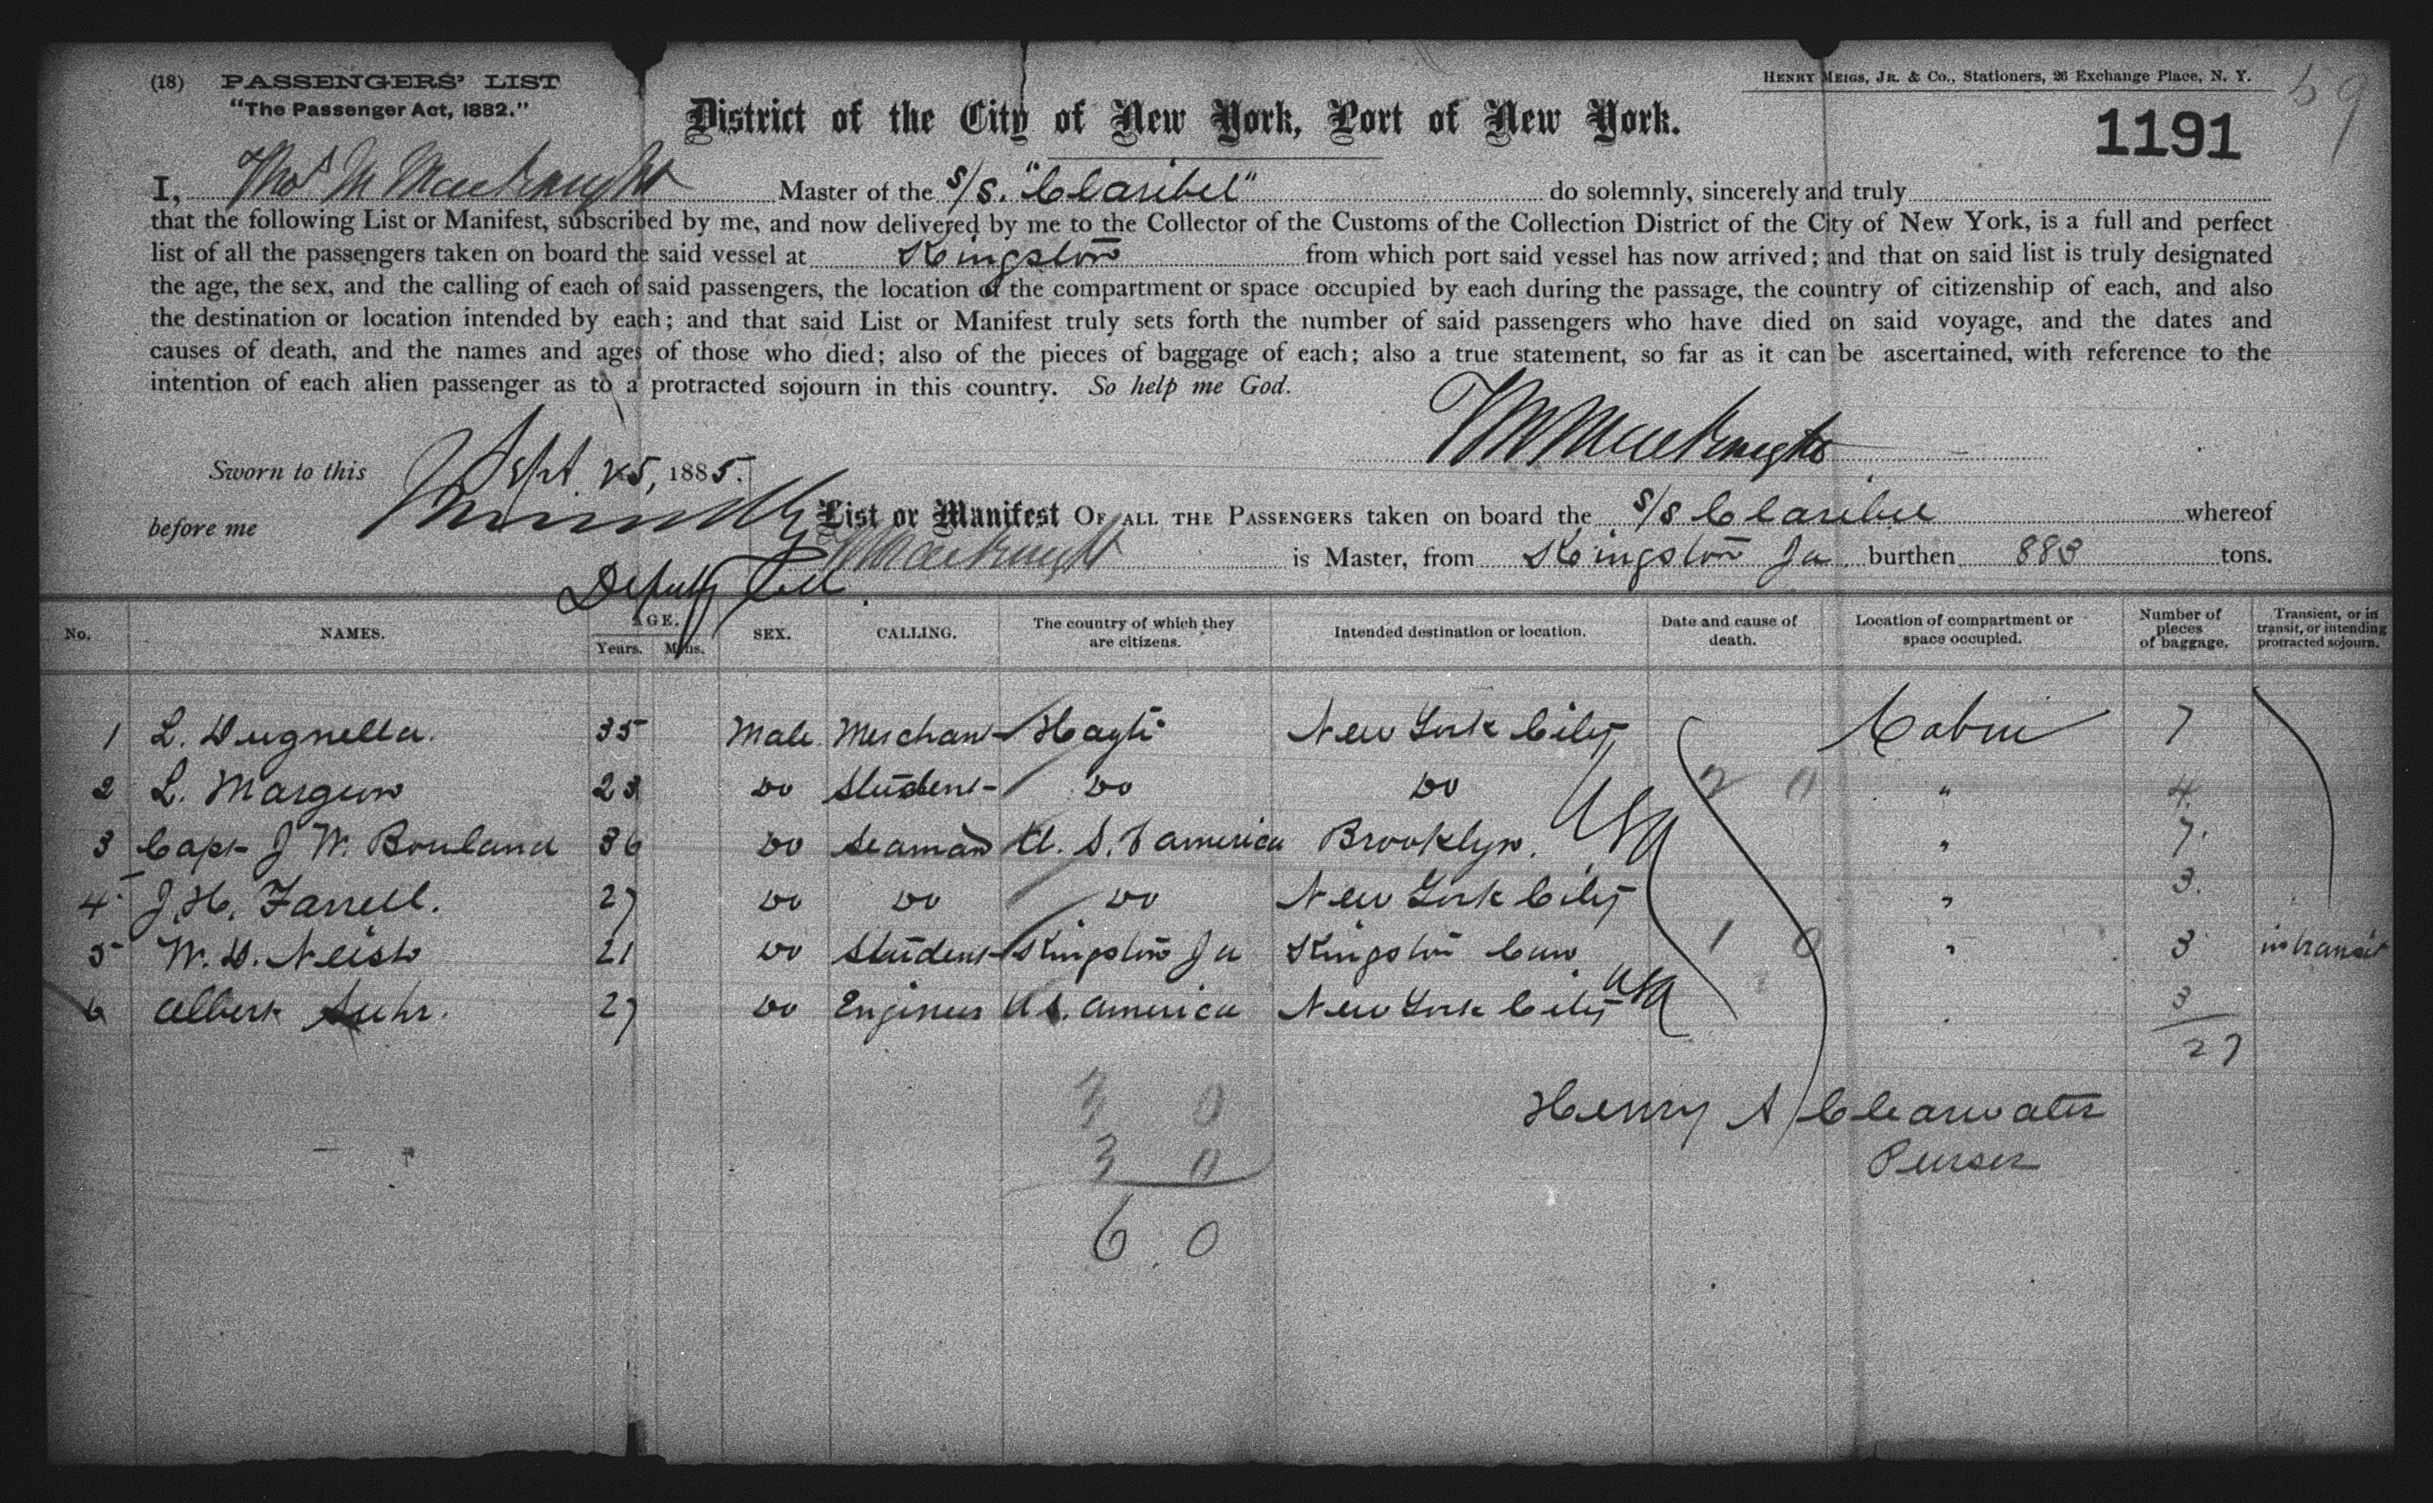 (18) PASSENGERS' LIST
"The Passenger Act, 1882."
HENRY MEIGS, JR. & CO., Stationers, 26 Exchange Place, N. Y.
59
District of the City of New York, Port of New York.
1191
I, Thos M MacKnight Master of the s/s. "Claribel" do solemnly, sincerely and truly
that the following List or Manifest, subscribed by me, and now delivered by me to the Collector of the Customs of the Collection District of the City of New York, is a full and perfect
list of all the passengers taken on board the said vessel at Kingston from which port said vessel has now arrived; and that on said list is truly designated
the age, the sex, and the calling of each of said passengers, the location of the compartment or space occupied by each during the passage, the country of citizenship of each, and also
the destination or location intended by each; and that said List or Manifest truly sets forth the number of said passengers who have died on said voyage, and the dates and
causes of death, and the names and ages of those who died; also of the pieces of baggage of each; also a true statement, so far as it can be ascertained, with reference to the
intention of each alien passenger as to a protracted sojourn in this country. So help me God.
TM MacKnight
Sworn to this Sept 25, 1885.
before me
Deputy Coll
List or Manifest OF ALL THE PASSENGERS taken on board the s/s Claribel whereof
TM MacKnight is Master, from Kingston Ja burthen 883 tons.
No. NAMES. AGE. Years. Mths. SEX. CALLING. The country of which they are citizens. Intended destination or location. Date and cause of death. Location of compartment or space occupied. Number of pieces of baggage. Transient, or in transit, or intending protracted sojourn.
1 L. Dugnella. 35 Male Merchant Hayti New York City Cabin 7
2 L. Margun 23 Do Student Do Do 2 0 " 4
3 Capt J W. Bouland 36 Do Seaman U. S. America Brooklyn. USA " 7
4 J. H. Farrell. 27 Do Do Do New York City " 3.
5 W. D. Neish 21 Do Student Kingston Ja Kingston Can 1 0 " 3 in transit
6 Albert Suhr. 27 Do Engineer U S. America New York City USA 3
27
3 0
3 0
6 0
Henry A Clearwater
Purser